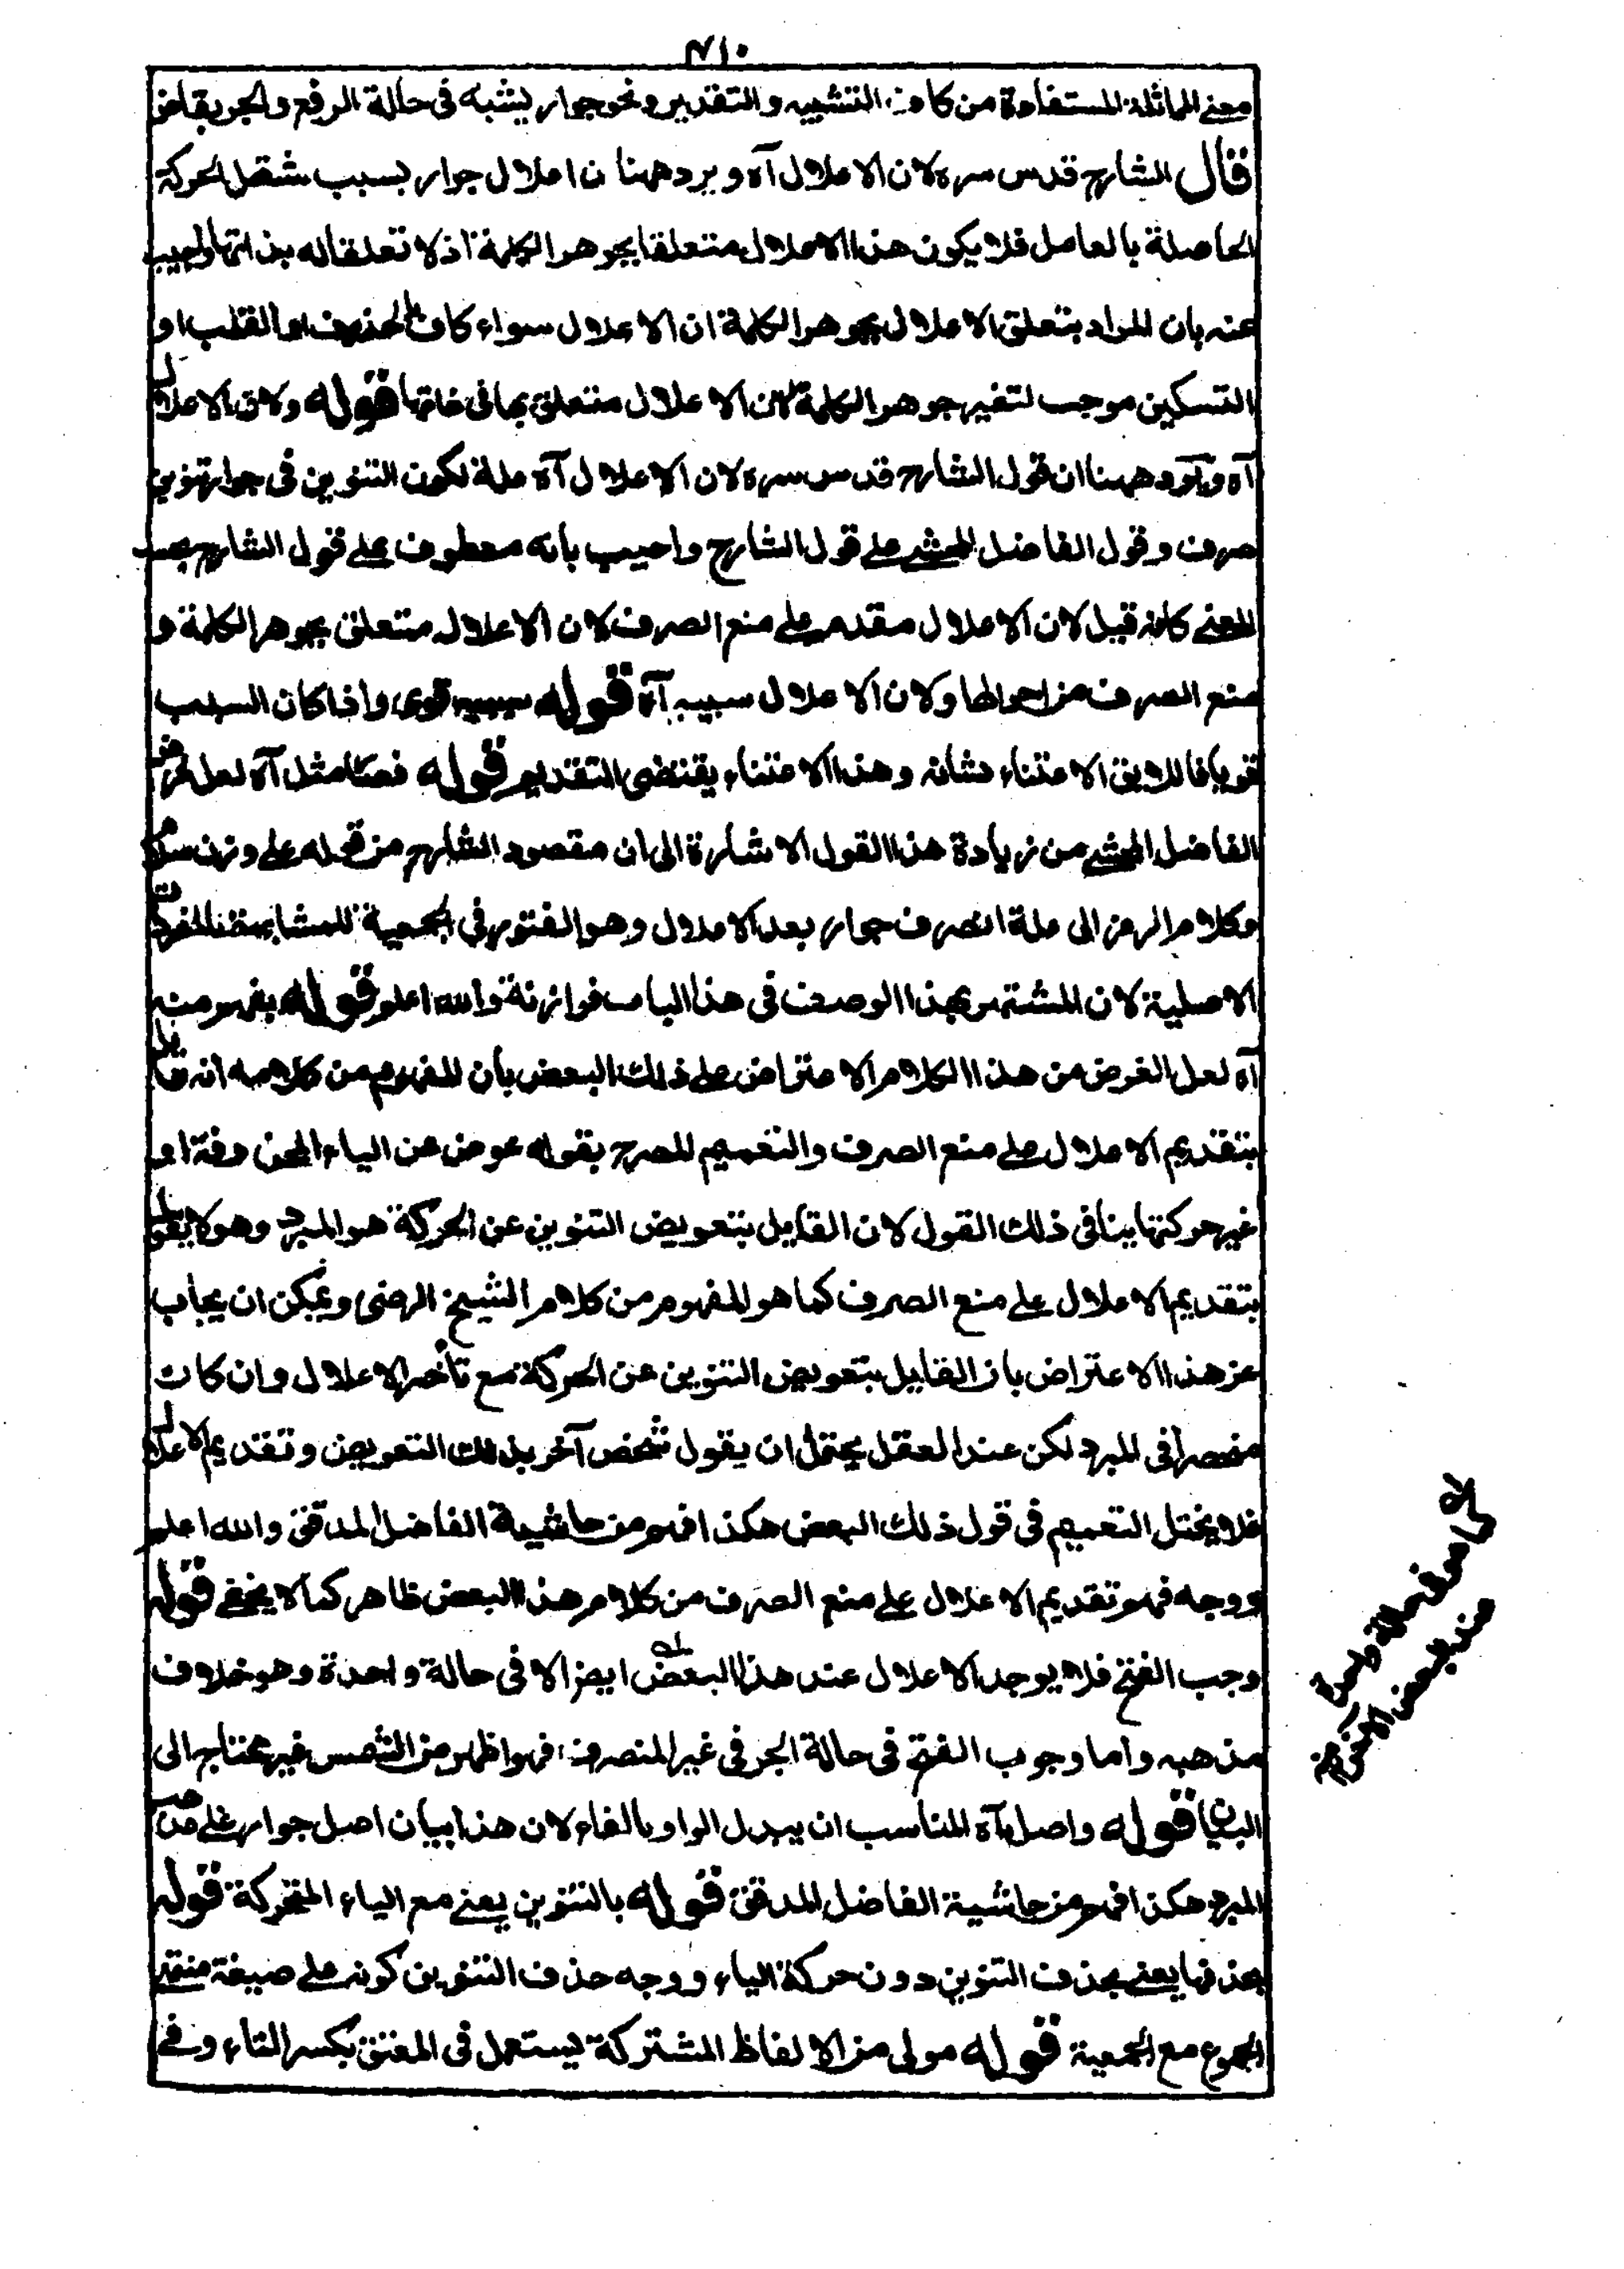 ٢١٠
معنى المماثلة المستفادة من كاف التشبيه والتقدير ونحو جوار يشبه في حالة الرفع والجر بقاض
قال الشارح قدس سره لان الاعلال آه ويرد ههنا ان اعلال جوار بسبب ثقل الحركة
الحاصلة بالعامل فلا يكون هذا الاعلال متعلقا بجوهر الكلمة اذ لا تعلقا له بذاتها واجيب
عنه بان المراد بتعلق الاعلال بجوهر الكلمة ان الاعلال سواء كان بالحذف او القلب او
التسكين موجب لتغير جوهر الكلمة لان الاعلال متعلق بما في ذاتها قوله ولان الاعلال
آه ويرد ههنا ان قول الشارح قدس سره لان الاعلال آه علة لكون التنوين في جوار تنوين
صرف وقول الفاضل المحشي على قول الشارح واجيب بانه معطوف على قول الشارح بحسب
المعنى كانه قيل لان الاعلال مقدم على منع الصرف لان الاعلال متعلق بجوهر الكلمة و
منع الصرف من احوالها ولان الاعلال سببه آه قوله سببه قوى واذا كان السبب
قويا فاللايق الاعتناء بشانه وهذا الاعتناء يقتضى التقديم قوله فصار مثل آه لعل غرض
الفاضل المحشي من زيادة هذا القول الاشارة الى ان مقصود الشارح من قوله على وزن سلام
وكلام الرمز الى علة انصراف جوار بعد الاعلال وهو الفتور في الجمعية للمشابهة بالمفردات
الاصلية لان المشتهر بهذا الوصف في هذا الباب فوازنة والله اعلم قوله يفهم منه
آه لعل الغرض من هذا الكلام الاعتراض على ذلك البعض بان المفهوم من كلامه انه قايل
بتقديم الاعلال على منع الصرف والتعميم المصرح بقوله عوض عن الياء المحذوفة او
غير حركتها ينافى ذلك القول لان القايل بتعويض التنوين عن الحركة هو المبرد وهو لا يقول
بتقديم الاعلال على منع الصرف كما هو المفهوم من كلام الشيخ الرضى ويمكن ان يجاب
عن هذا الاعتراض بان القايل بتعويض التنوين عن الحركة مع تأخير الاعلال وان كان
منحصرا في المبرد لكن عند العقل يحتمل ان يقول شخص آخر بذلك التعويض وتقديم الاعلال
فلا يختل التعميم في قول ذلك البعض هكذا افهم من حاشية الفاضل المدقق والله اعلم
ووجه فهم تقديم الاعلال على منع الصرف من كلام هذا البعض ظاهر كما لا يخفى قوله
وجب الفتح فلا يوجد الاعلال عند هذا البعض ايضا الا في حالة واحدة وهو خلاف
مذهبه واما وجوب الفتح في حالة الجر في غير المنصرف فهو اظهر من الشمس غير محتاج الى
البيان قوله واصله آه المناسب ان يبدل الواو بالفاء لان هذا بيان اصل جوار على مذهب
المبرد هكذا افهم من حاشية الفاضل المدقق قوله بالتنوين يعنى مع الياء المتحركة قوله
بحذفها يعنى بحذف التنوين دون حركة الياء ووجه حذف التنوين كونه على صيغة منتهى
الجموع مع الجمعية قوله مولى من الالفاظ المشتركة يستعمل في المعتق بكسر التاء وفي